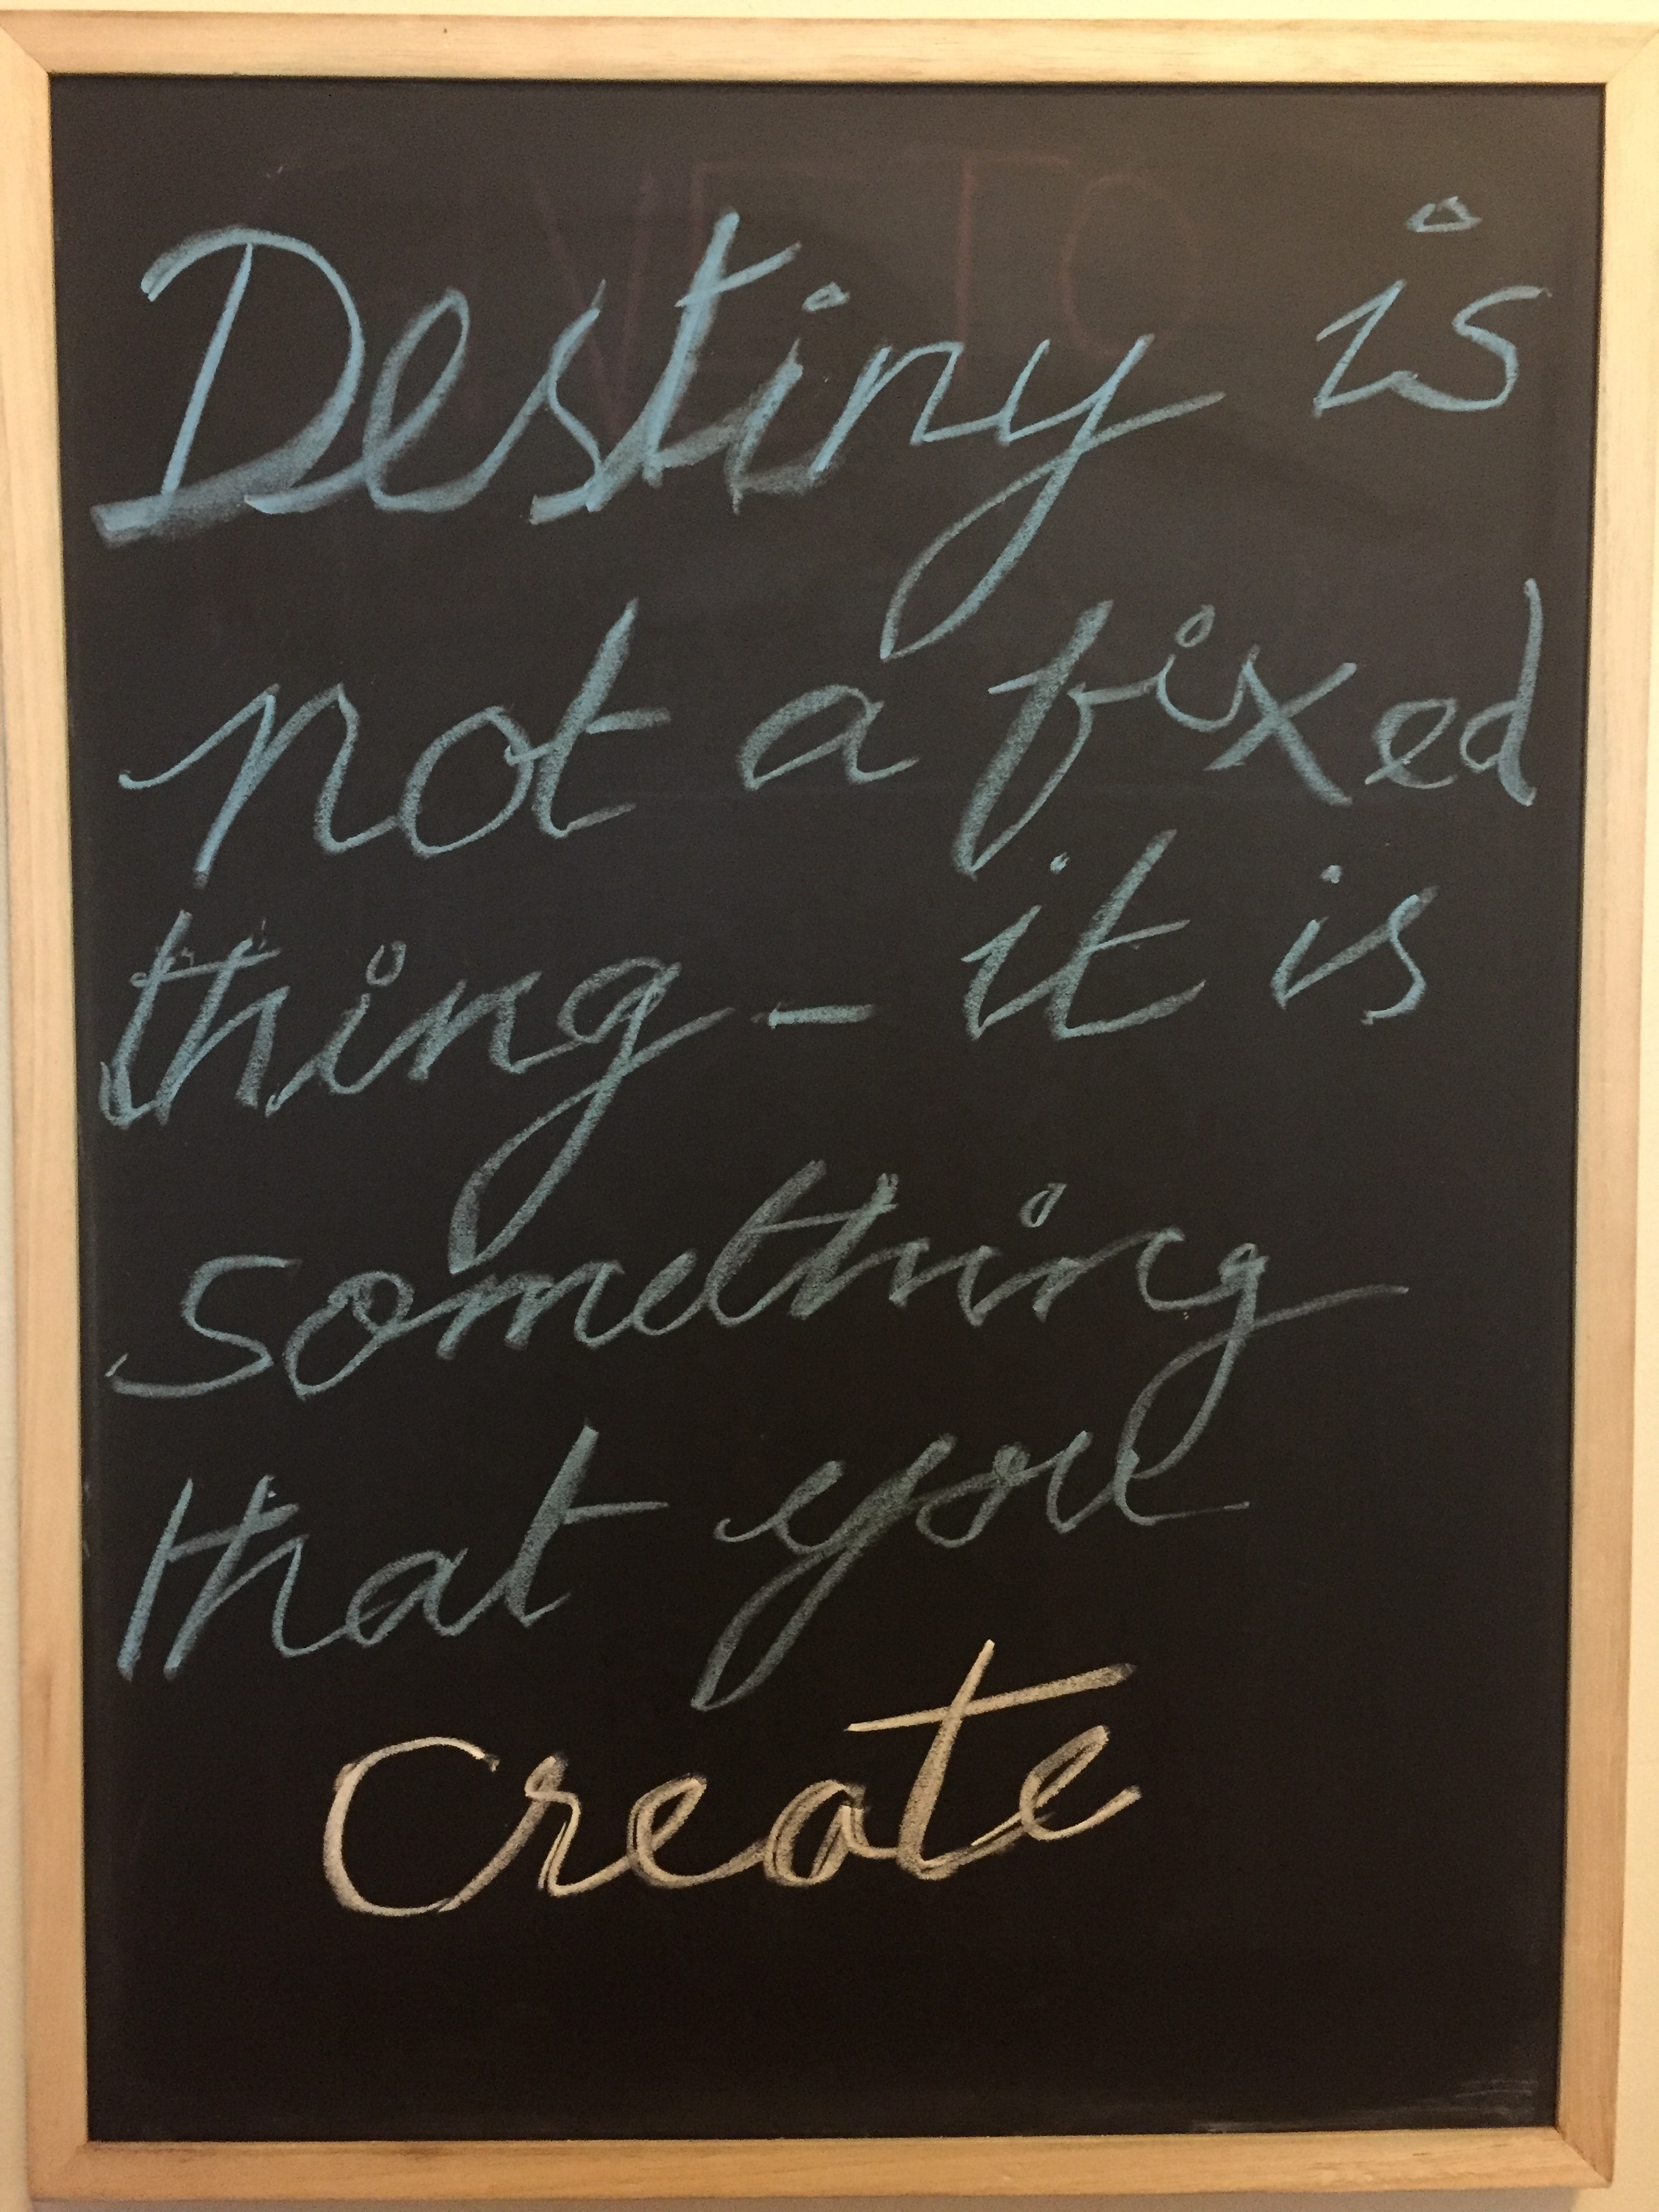 Destiny is
not a fixed
thing - it is
something
that you
Create